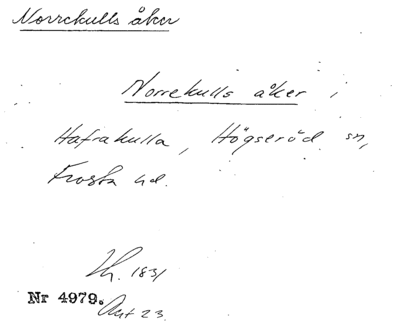 Norrekulls åker
Norrekulls åker i
Hafrakulla, Högseröd sn,
Frosta hd.
Lh. 1831
Nr 4979.
Akt 23